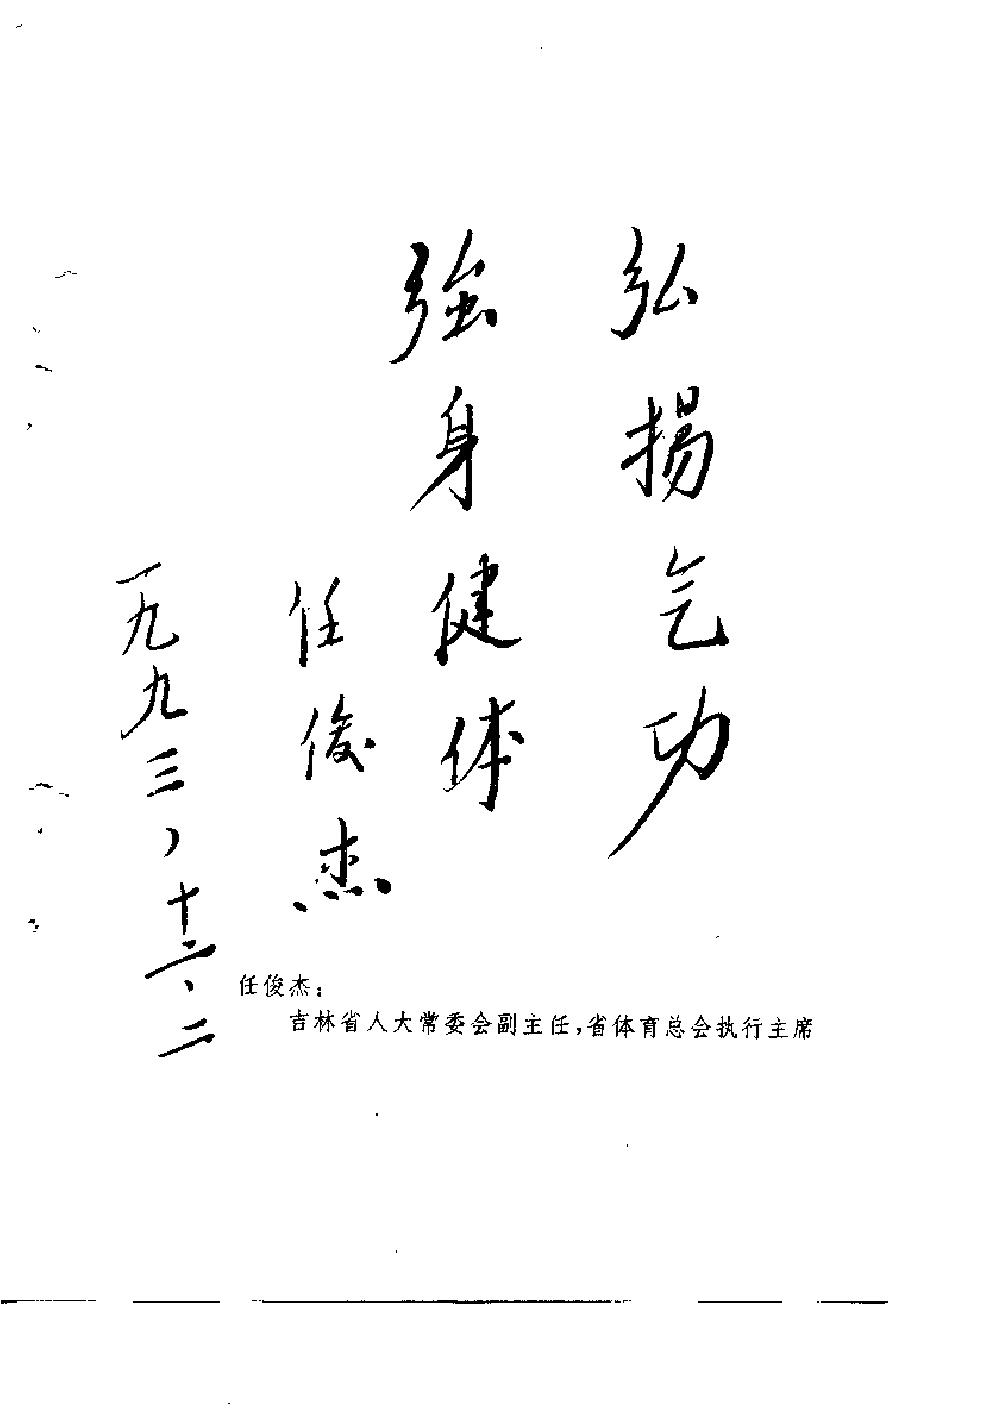 弘揚气功
強身健体
任俊杰
一九九三、十二、二
任俊杰：
吉林省人大常委会副主任，省体育总会执行主席